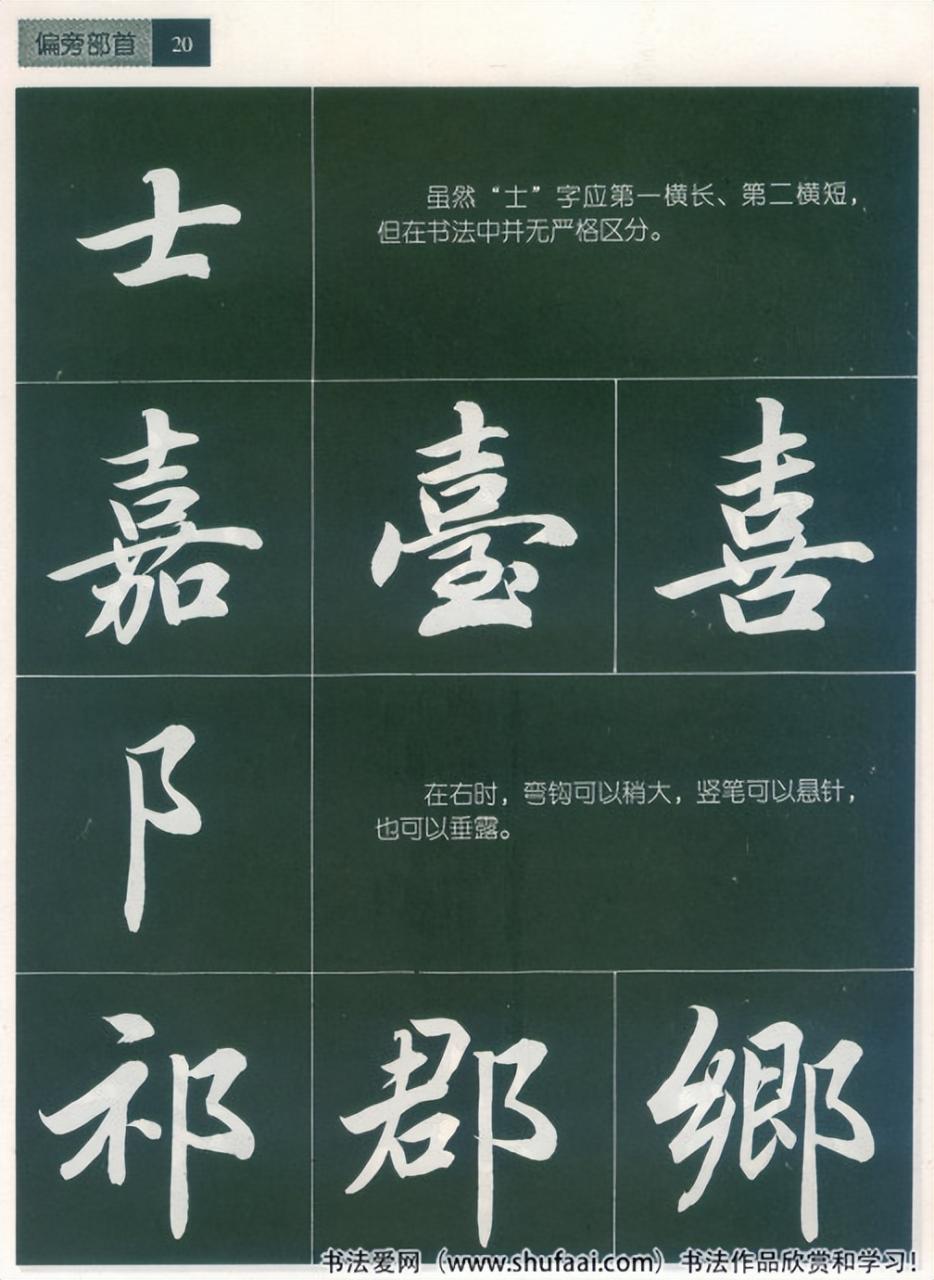 偏旁部首 20
士
虽然“士”字应第一横长、第二横短，
但在书法中并无严格区分。
嘉 臺 喜
阝
在右时，弯钩可以稍大，竖笔可以悬针，
也可以垂露。
祁 郡 鄉
书法爱网（www.shufaai.com）书法作品欣赏和学习！